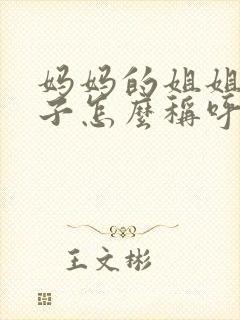 妈妈的姐姐
子怎麼稱呼
王文彬